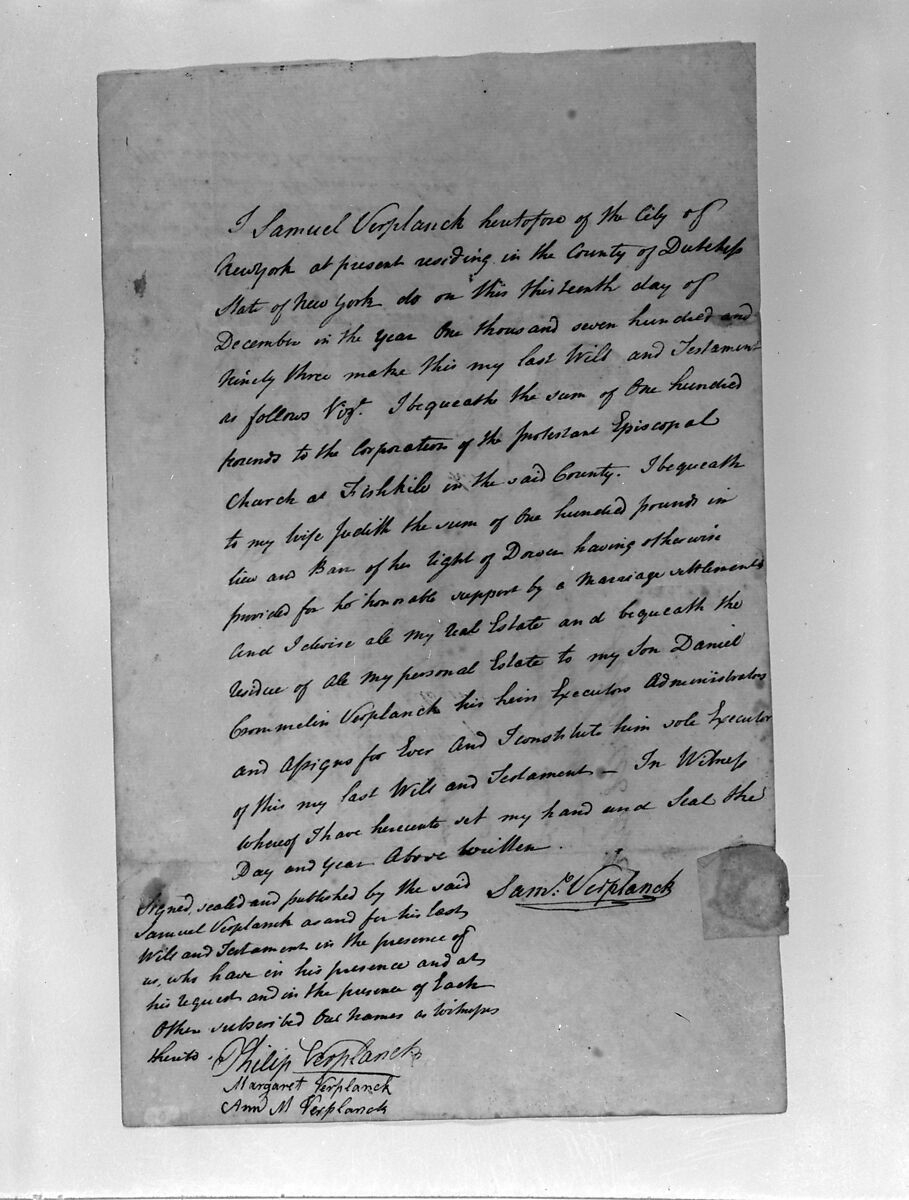 I Samuel Verplanck heretofore of the City of
Newyork at present residing in the County of Dutchess
State of New York do on this thirteenth day of
December in the Year One thousand seven hundred and
Ninety three make this my last Will and Testament
as follows Vizt. I bequeath the sum of One hundred
pounds to the Corporation of the Protestant Episcopal
Church at Fishkill in the said County. I bequeath
to my wife Judith the sum of One hundred pounds in
lieu and Barr of her right of Dower having otherwise
provided for her honorable support by a Marriage settlement
And I devise all my real Estate and bequeath the
residue of all my personal Estate to my Son Daniel
Crommelin Verplanck his heirs Executors Administrators
and Assigns for Ever And I constitute him sole Executor
of this my last Will and Testament — In Witness
whereof I have hereunto set my hand and Seal the
Day and Year Above Written.
Saml. Verplanck
Signed, sealed and published by the said
Samuel Verplanck as and for his last
Will and Testament in the presence of
us, who have in his presence and at
his request and in the presence of Each
Other subscribed Our Names as Witnesses
thereto.
Philip Verplanck
Margaret Verplanck
Ann M Verplanck